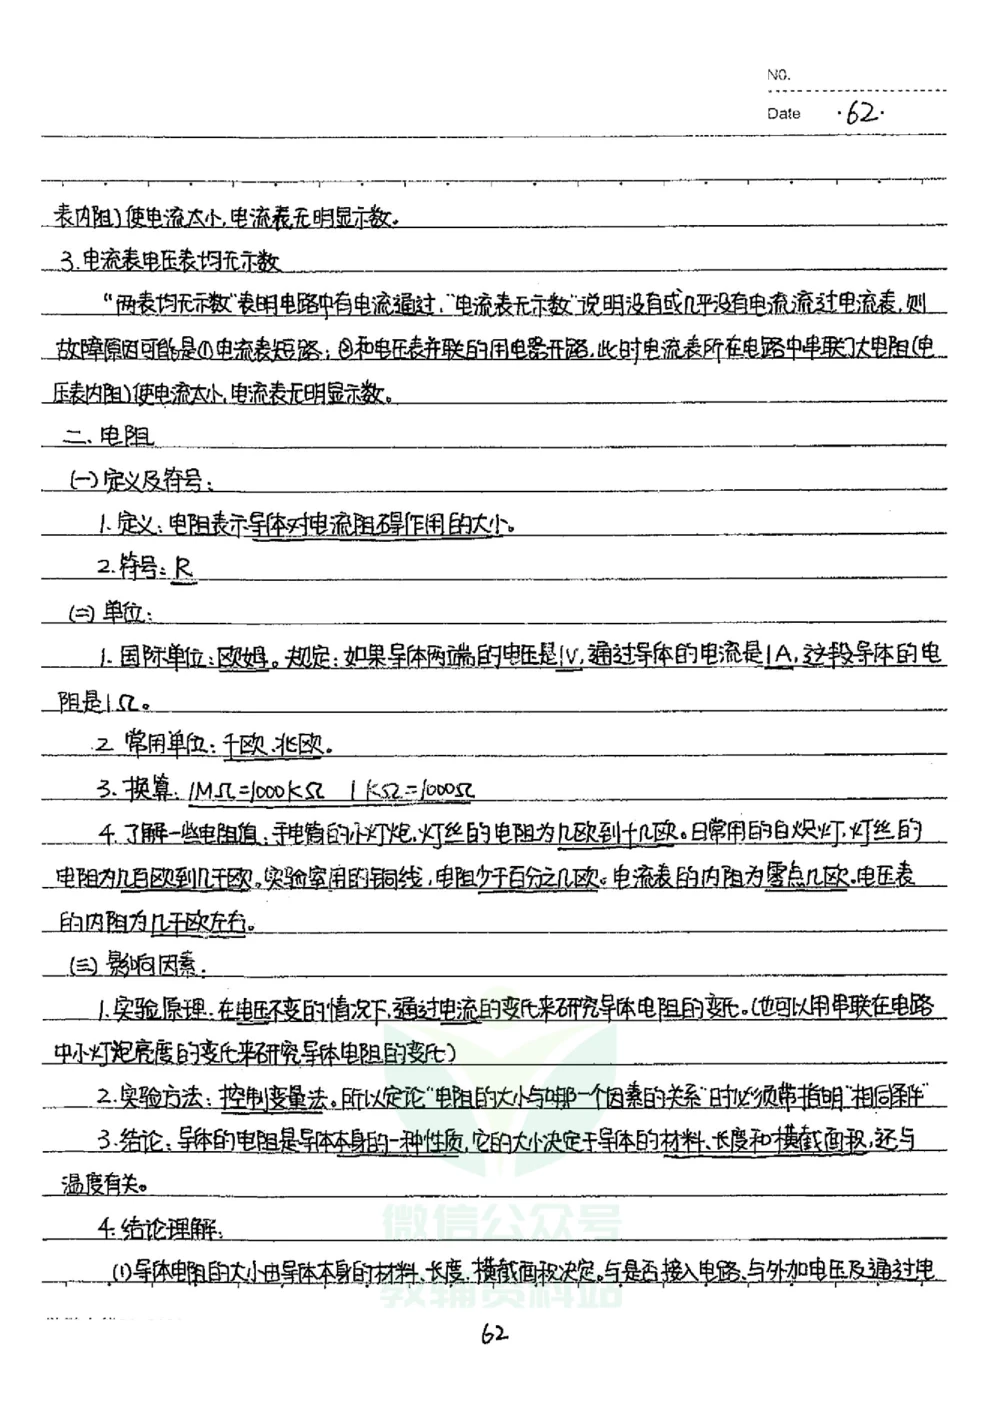 NO.
Date ·62·
表内阻)使电流太小,电流表无明显示数。
3.电流表电压表均无示数
“两表均无示数”表明电路中有电流通过,“电流表无示数”说明没有或几乎没有电流流过电流表,则
故障原因可能是①电流表短路;②和电压表并联的用电器开路,此时电流表所在电路中串联了大电阻(电
压表内阻)使电流太小,电流表无明显示数。
二、电阻
(一)定义及符号:
1.定义:电阻表示导体对电流阻碍作用的大小。
2.符号:R
(二)单位:
1.国际单位:欧姆。规定:如果导体两端的电压是1V,通过导体的电流是1A,这段导体的电
阻是1Ω。
2.常用单位:千欧、兆欧。
3.换算:1MΩ=1000KΩ 1KΩ=1000Ω
4.了解一些电阻值:手电筒的小灯炮,灯丝的电阻为几欧到十几欧。日常用的白炽灯,灯丝的
电阻为几百欧到几千欧。实验室用的铜线,电阻少于百分之几欧。电流表的内阻为零点几欧。电压表
的内阻为几千欧左右。
(三)影响因素:
1.实验原理:在电压不变的情况下,通过电流的变化来研究导体电阻的变化。(也可以用串联在电路
中小灯泡亮度的变化来研究导体电阻的变化)
2.实验方法:控制变量法。所以定论“电阻的大小与哪一个因素的关系”时必须带指明“相同条件”
3.结论:导体的电阻是导体本身的一种性质,它的大小决定于导体的材料、长度和横截面积,还与
温度有关。
4.结论理解:
(1)导体电阻的大小由导体本身的材料、长度、横截面积决定。与是否接入电路、与外加电压及通过电
微信公众号
教辅资料站
62